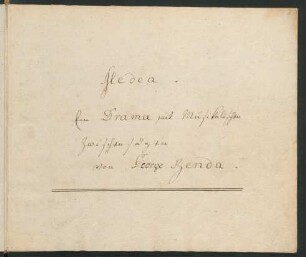 Medea.
Ein Drama mit Musikalischen
Zwischensäzen
von George Benda.